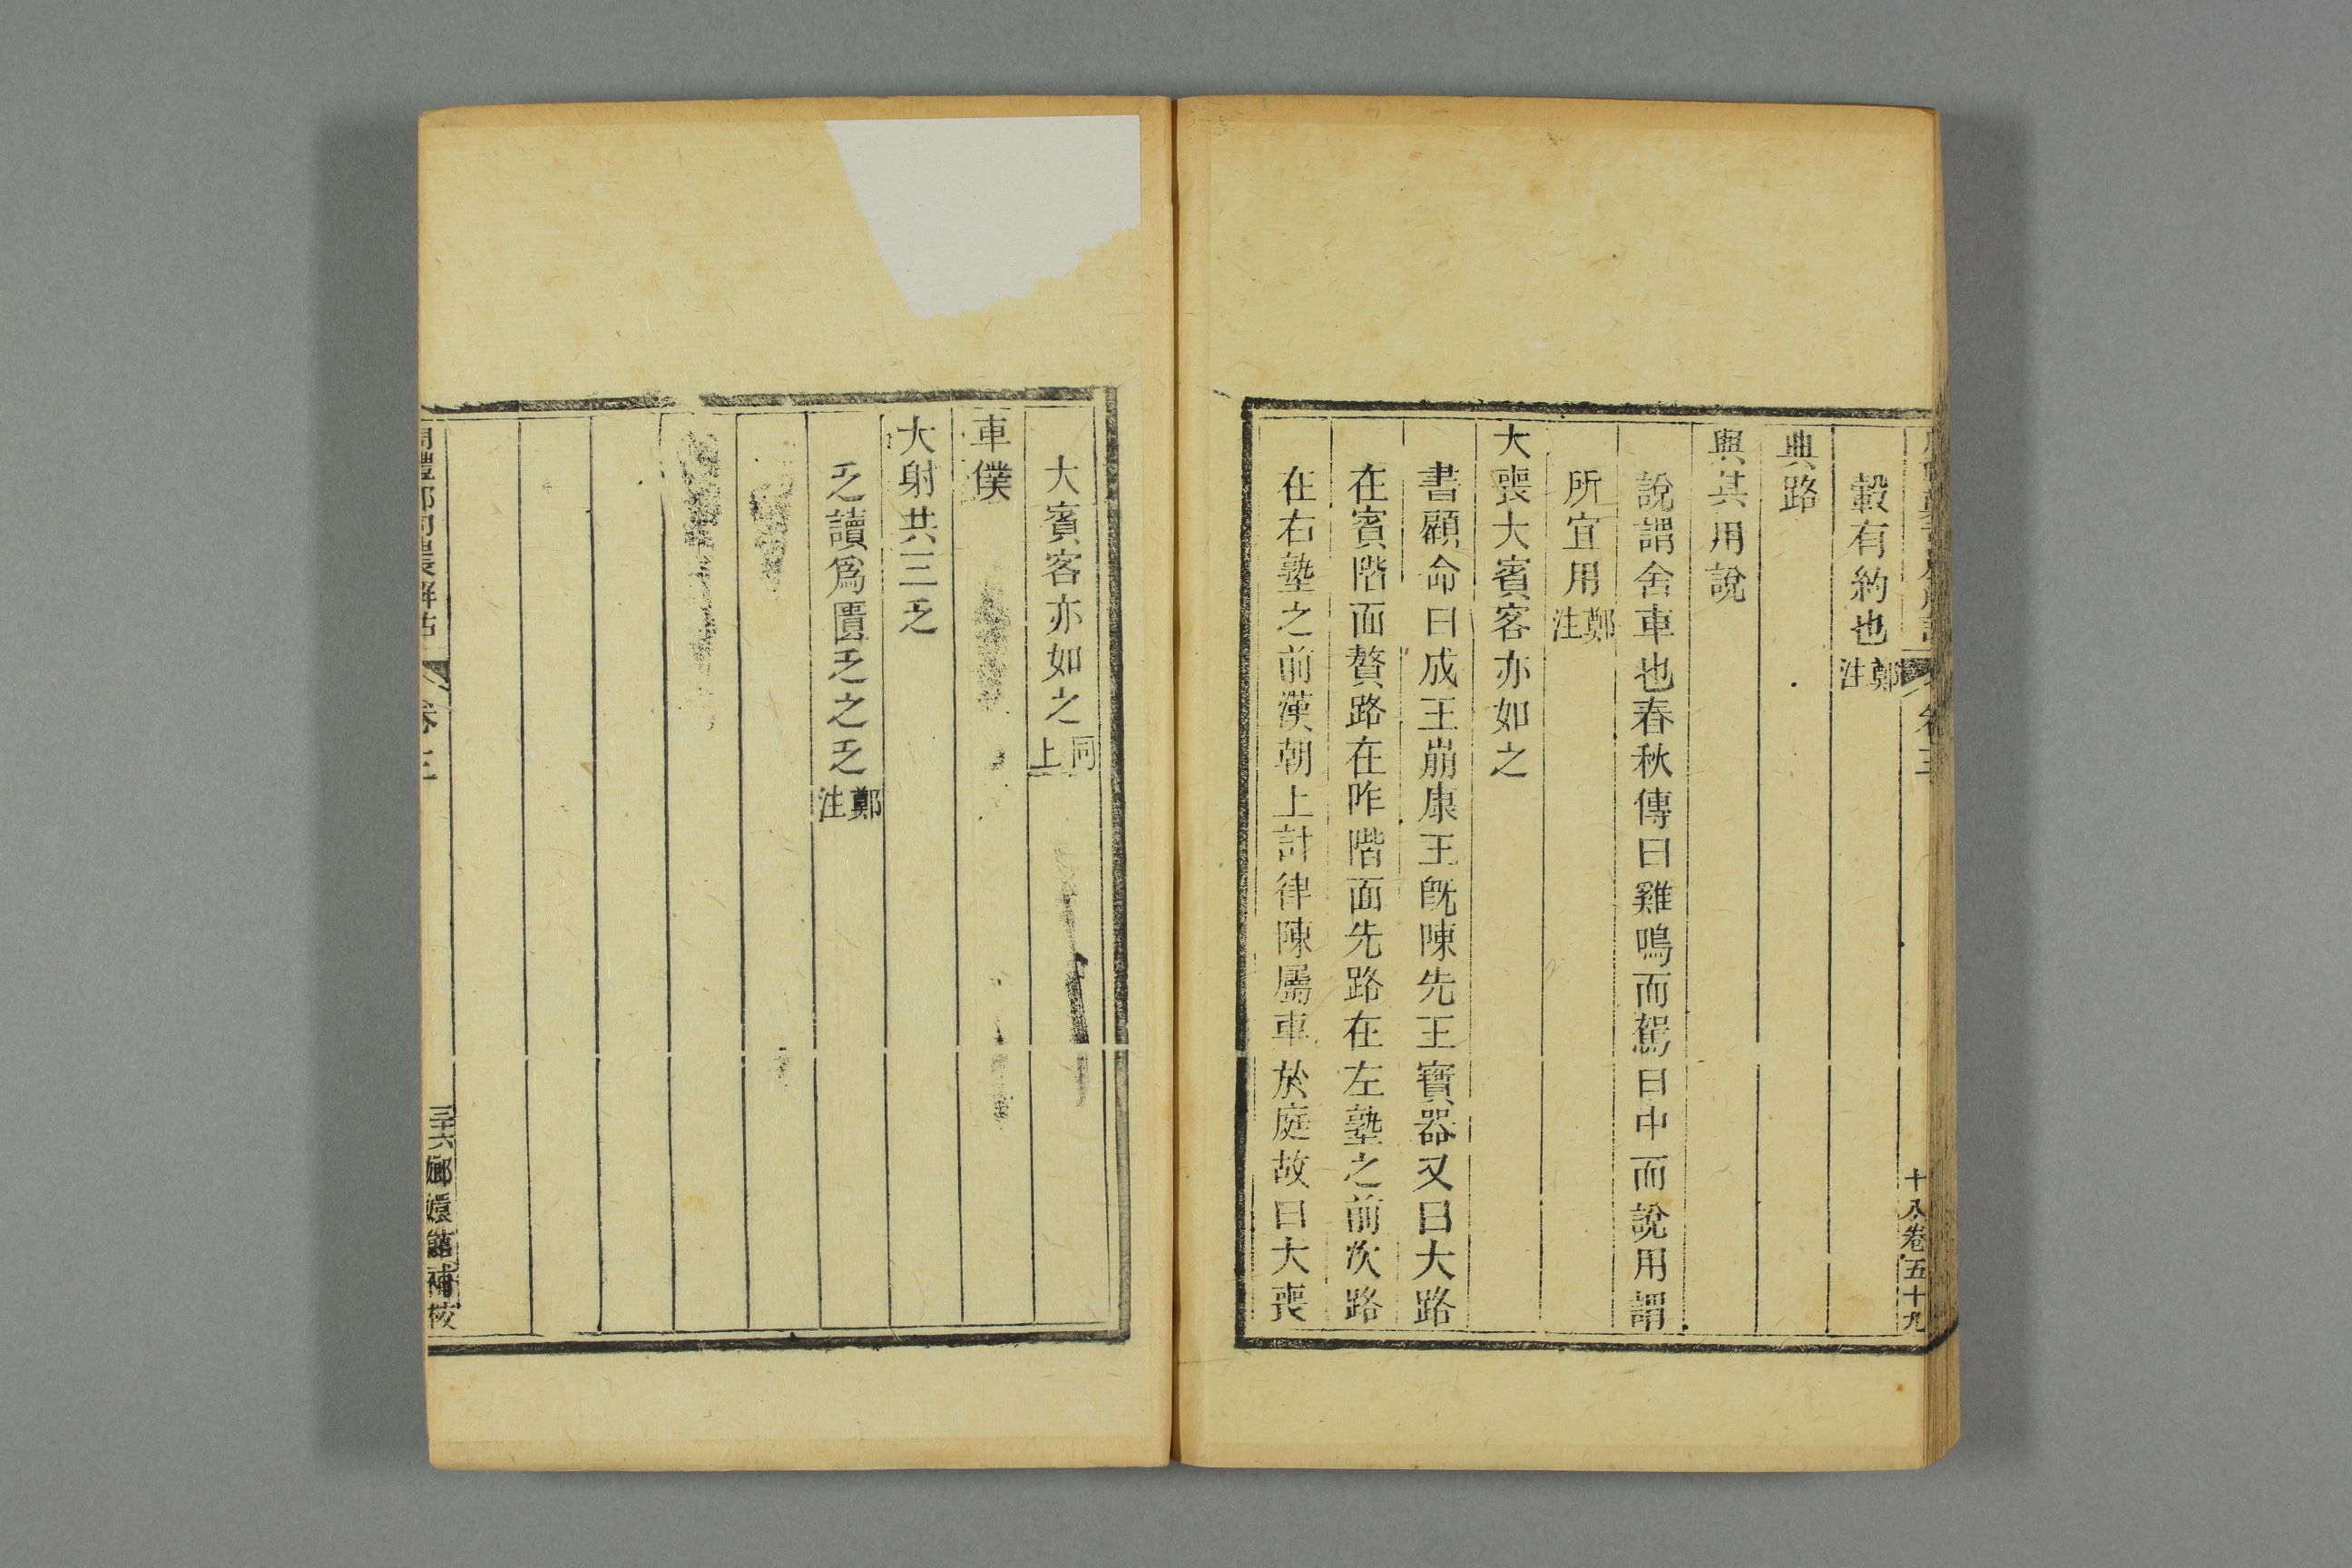 轂有約也鄭注
典路
與其用說
說謂舍車也春秋傳曰雞鳴而駕日中而說用謂
所宜用鄭注
大喪大賓客亦如之
書顧命曰成王崩康王旣陳先王寶器又曰大路
在賓階面贅路在阼階面先路在左塾之前次路
在右塾之前漢朝上計律陳屬車於庭故曰大喪
十八卷五十九
大賓客亦如之同上
車僕
大射共三乏
乏讀爲匱乏之乏鄭注
周禮鄭司農解詁
卷三
三十六
嫏嬛館補校